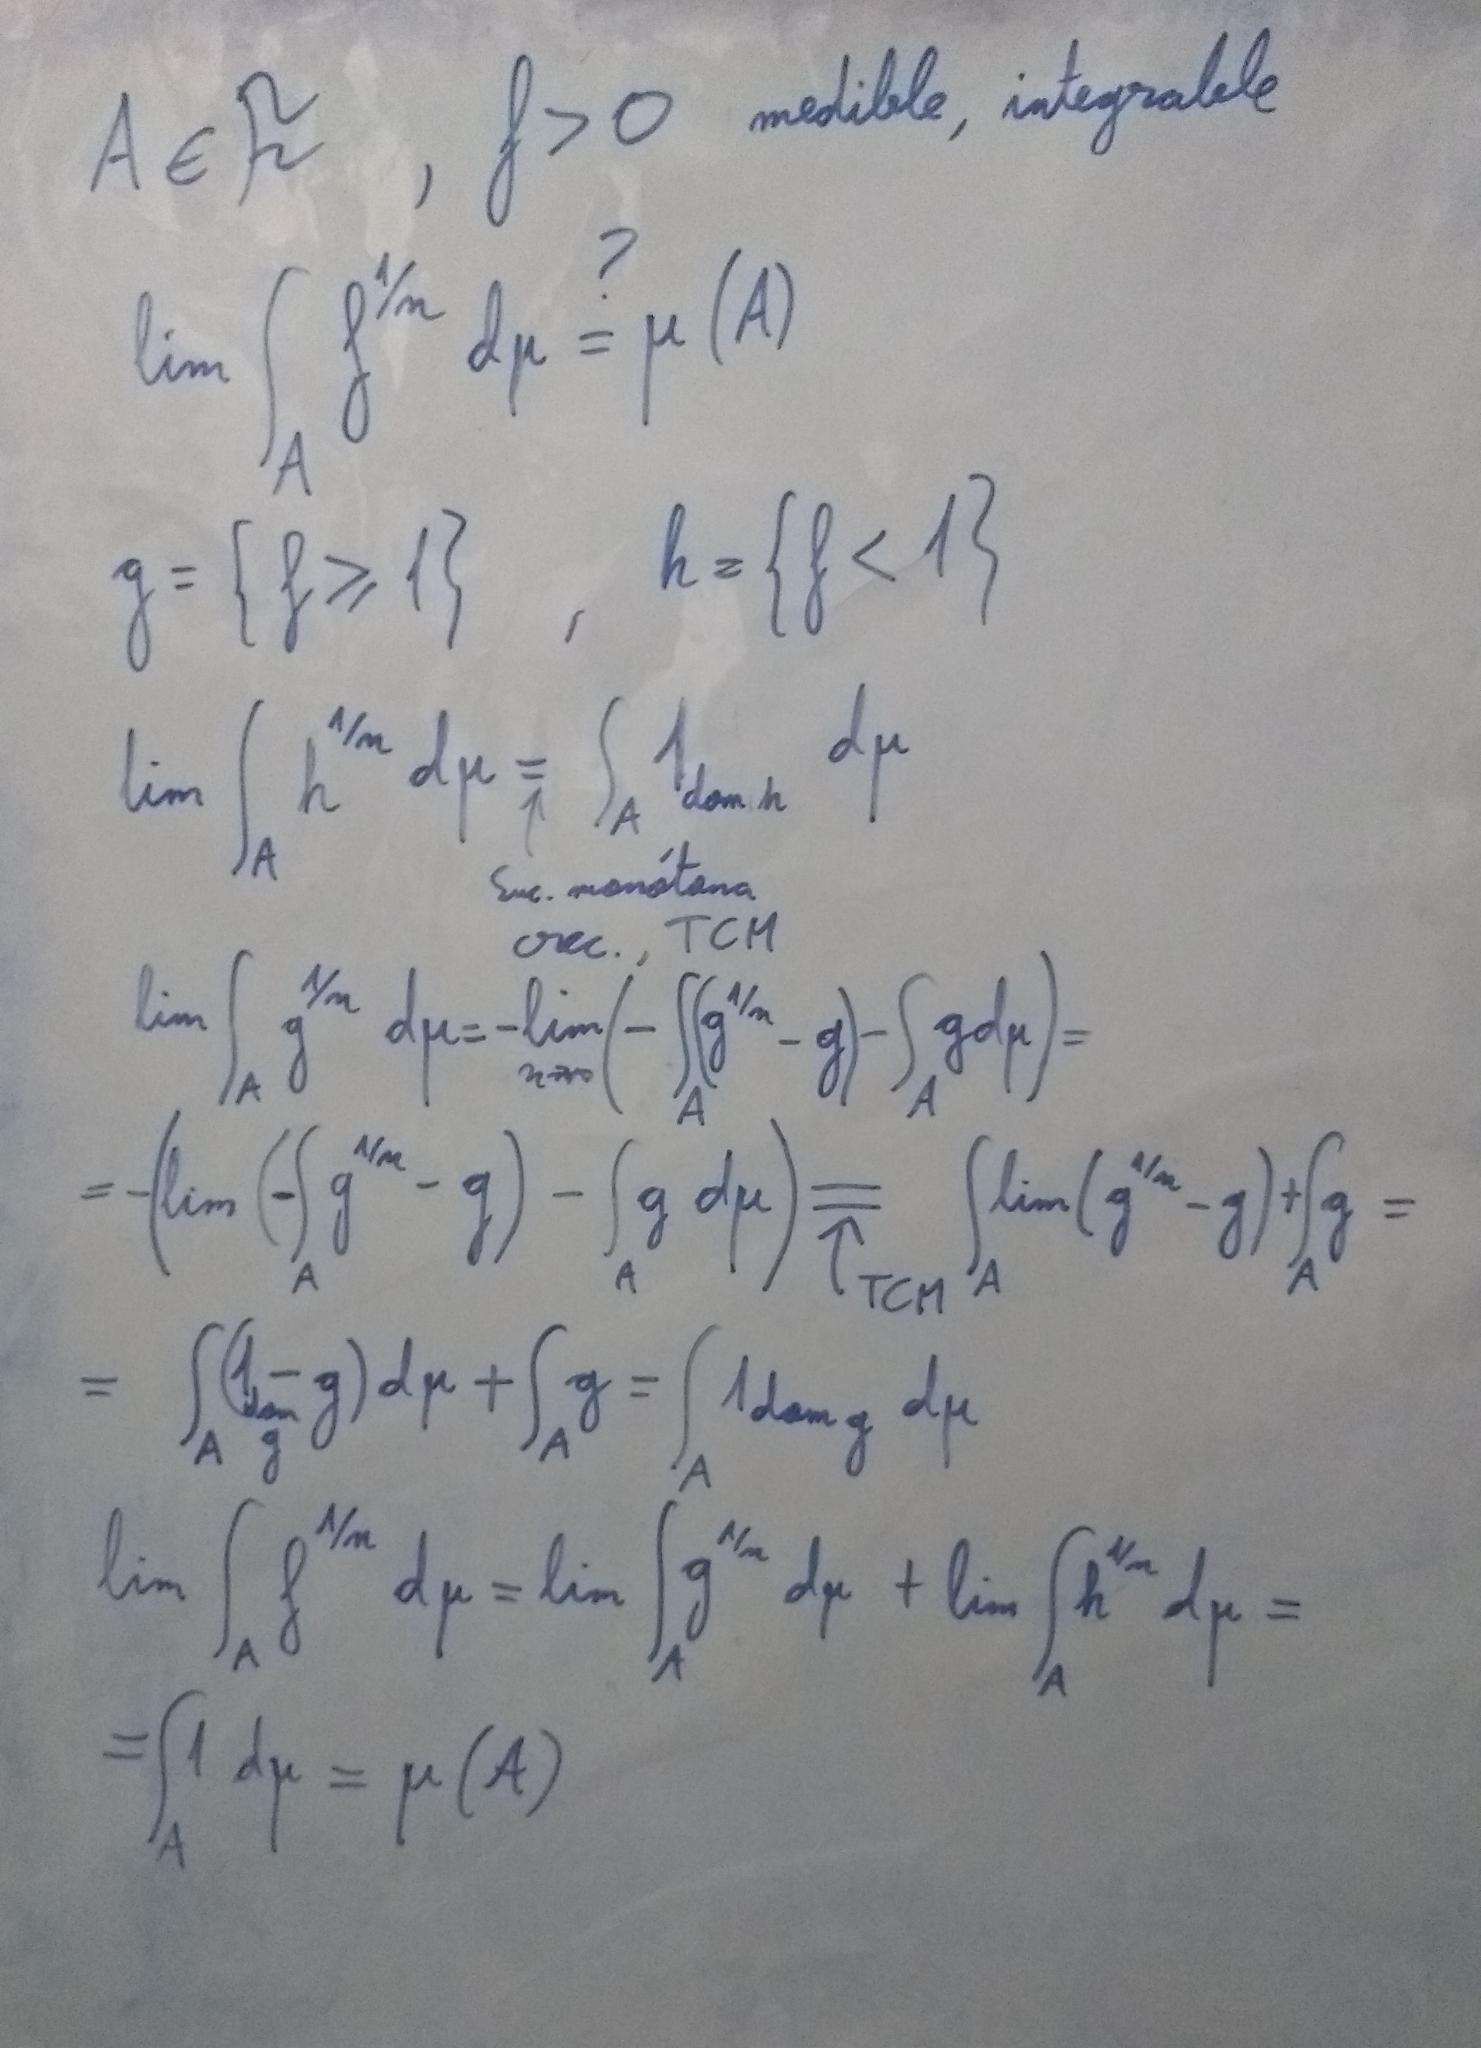 A ∈ ℱ, f > 0 medible, integrable
lim ∫_A f^{1/n} dμ =? μ(A)
g = {f ≥ 1}, h = {f < 1}
lim ∫_A h^{1/n} dμ = ∫_A 1_{dom h} dμ
↑
Suc. monótona
crec., TCM
lim ∫_A g^{1/n} dμ = -lim_{n→∞} (- ∫_A (g^{1/n} - g) - ∫_A g dμ) =
= -(lim (-∫_A g^{1/n} - g) - ∫_A g dμ) = ∫_A lim (g^{1/n} - g) + ∫_A g =
↑ TCM
= ∫_A (1_{dom g} - g) dμ + ∫_A g = ∫_A 1_{dom g} dμ
lim ∫_A f^{1/n} dμ = lim ∫_A g^{1/n} dμ + lim ∫_A h^{1/n} dμ =
= ∫_A 1 dμ = μ(A)